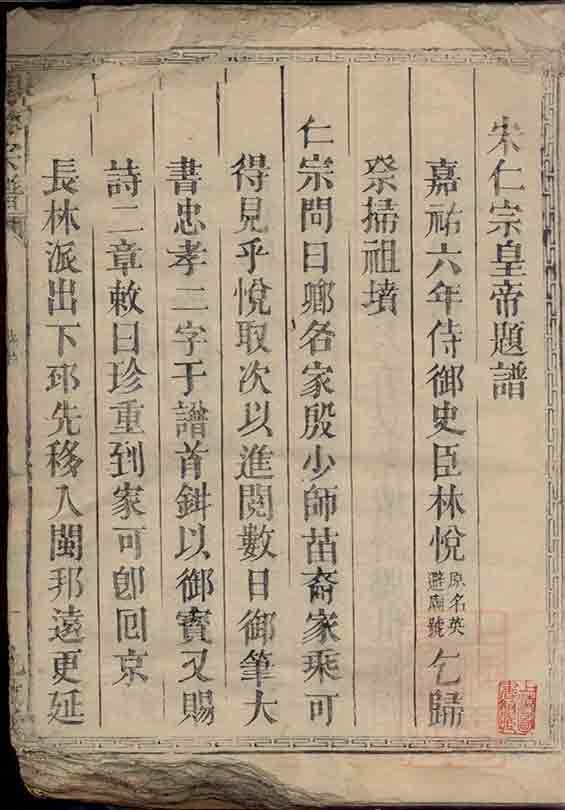 宋仁宗皇帝題譜
嘉祐六年侍御史臣林悅原名英避廟號乞歸
祭掃祖墳
仁宗問曰卿名家殷少師苗裔家乘可
得見乎悅取次以進閱數日御筆大
書忠孝二字于譜首鈄以御寶又賜
詩二章敕曰珍重到家可卽回京
長林派出下邳先移入閩邦遠更延